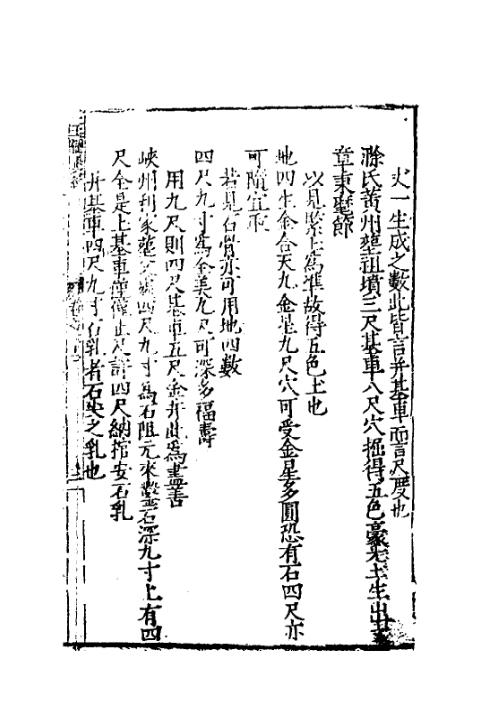 火一生成之數此皆言并基車而言尺度也
滁氏黃州塟祖墳三尺基車八尺穴掘得五色豪光土生出
章秉壁節
以見𦂳土為準故得五色土也
地四生金合天九金是九尺穴可受金星多圓恐有石四尺亦
可隨宜取
若是石骨亦可用地四數
四尺九寸為全美九尺可深多福壽
用九尺則四尺基車五尺金井此為盡善
峽州刘家塟 四尺九寸為石阻元來鑿石深九寸上有四
尺全是上基車僅僅止尺許四尺納棺安石乳
并基車四尺九寸石乳者石央之乳也